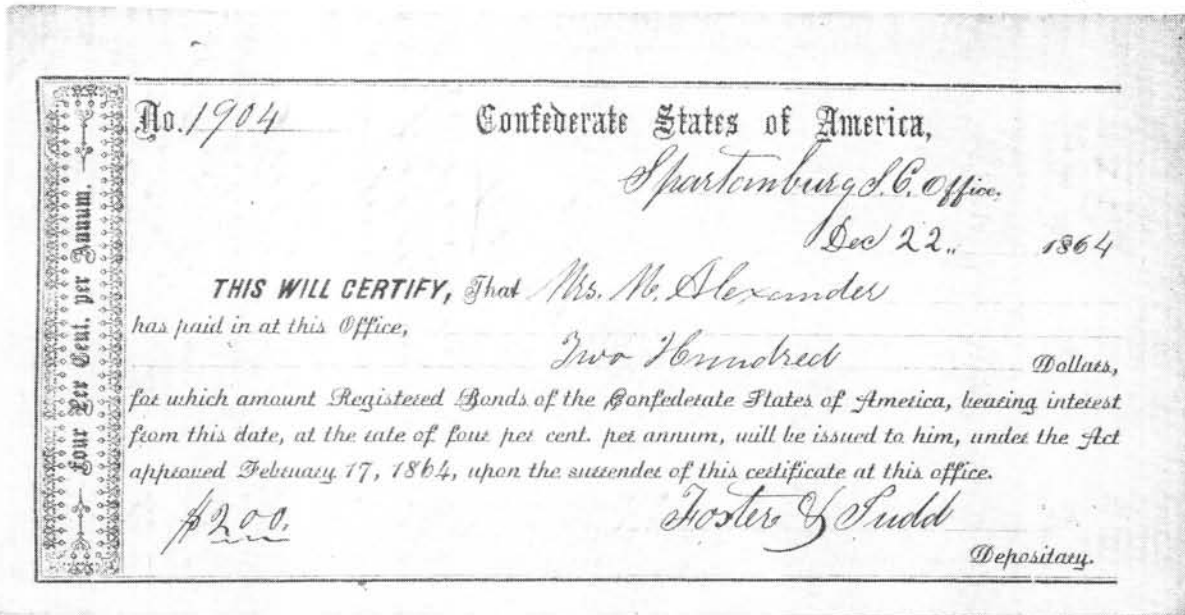 Four Per Cent. per Annum.
No. 1904 Confederate States of America,
Spartanburg S.C. Office.
Dec 22.. 1864
THIS WILL CERTIFY, That Mrs. M. Alexander
has paid in at this Office,
Two Hundred Dollars,
for which amount Registered Bonds of the Confederate States of America, bearing interest
from this date, at the rate of four per cent. per annum, will be issued to him, under the Act
approved February 17, 1864, upon the surrender of this certificate at this office.
$200. Foster & Judd
Depositary.